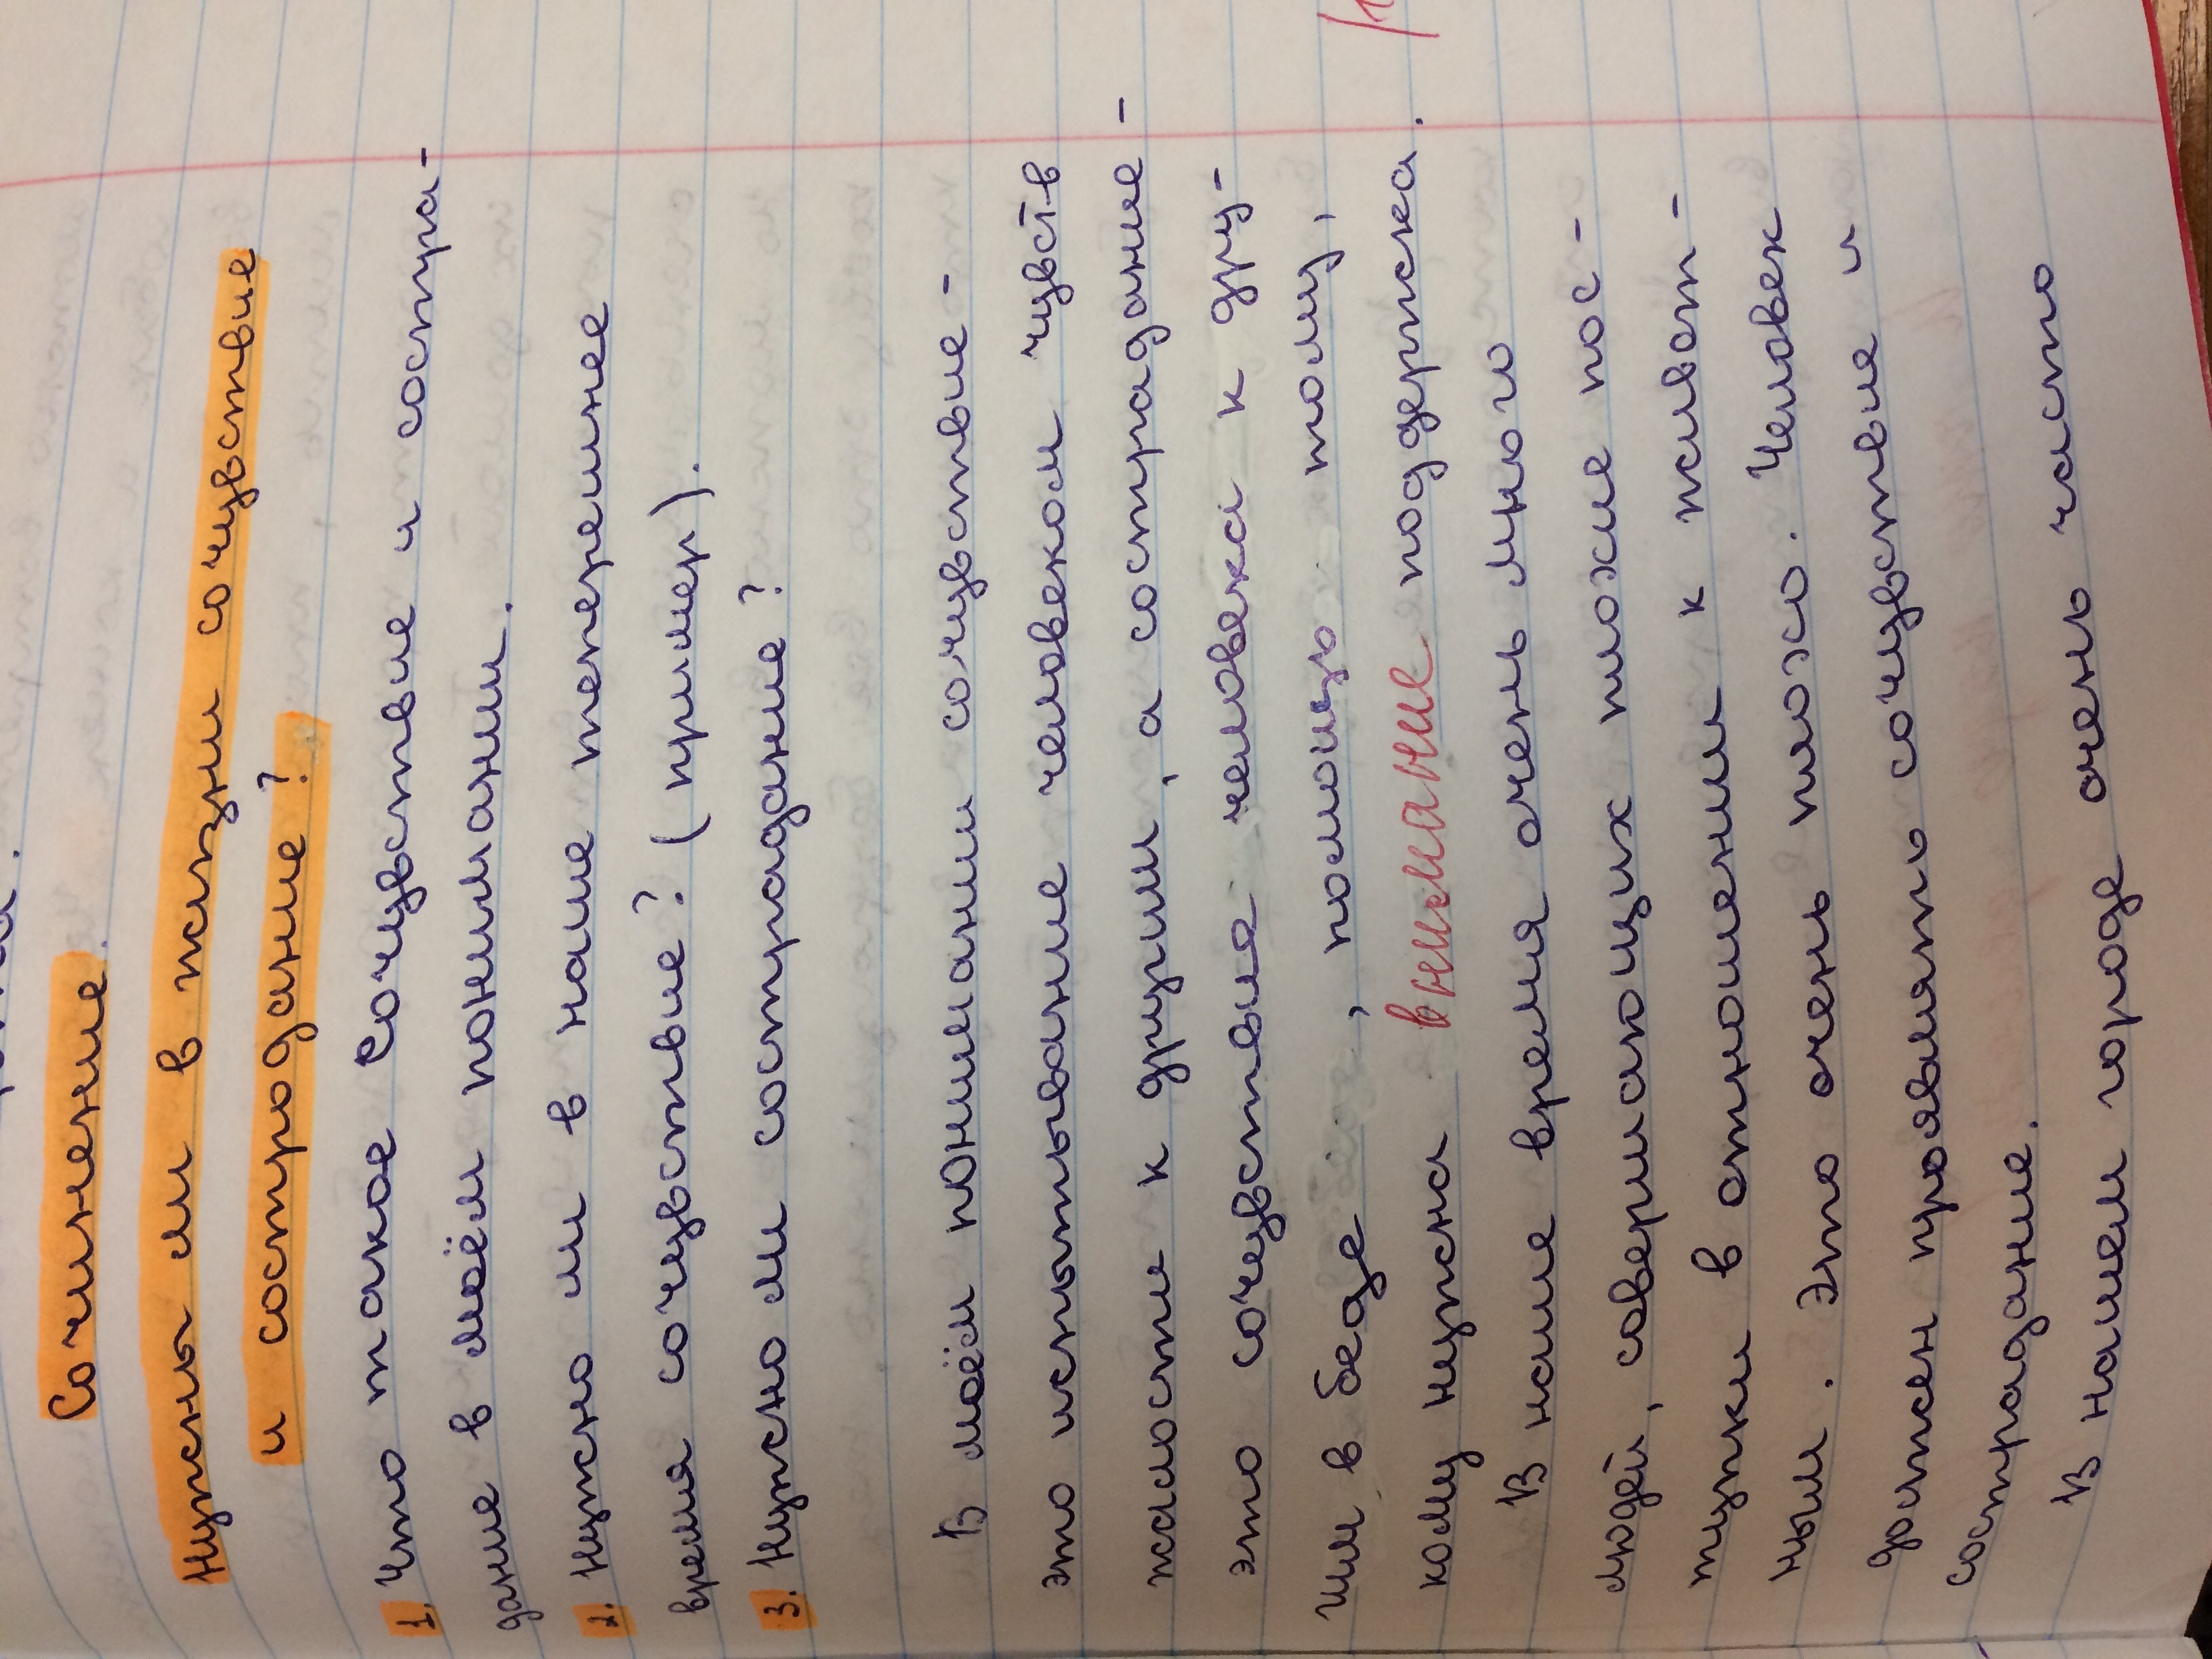 Сочинение.
Нужны ли в жизни сочувствие
и состродание?
1. Что такое Сочувствие и состра-
дание в моём понимании.
2. Нужно ли в наше теперешнее
время сочувствие? (пример).
3. Нужно ли сострадание?
В моём понимании сочувствие -
это испытывание человеком чувств
жалости к другим, а сострадание -
это сочувствие человека к дру-
гим в беде, помощь тому,
кому нужна внимание поддержка.
В наше время очень много
людей, совершающих плохие пос-
тупки в отношении к живот-
ным. Это очень плохо. Человек
должен проявлять сочувствие и
сострадание.
В нашем городе очень часто